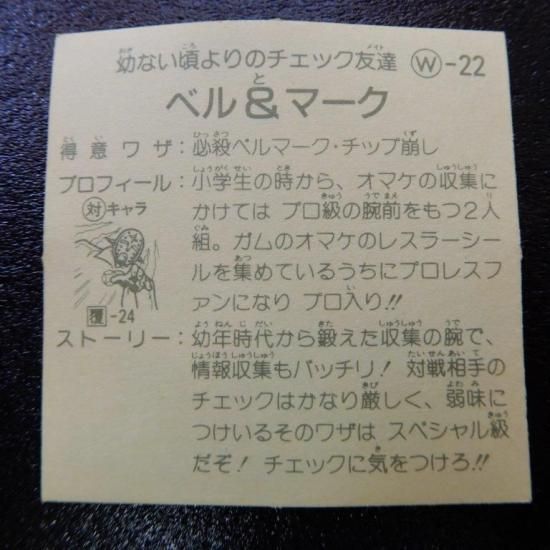 幼ない頃よりのチェック友達 Ⓦ-22
ベル&マーク
得意ワザ:必殺ベルマーク・チップ崩し
プロフィール:小学生の時から、オマケの収集に
かけては プロ級の腕前をもつ2人
組。ガムのオマケのレスラーシー
ルを集めているうちにプロレスフ
ァンになり プロ入り!!
対キャラ
覆-24
ストーリー:幼年時代から鍛えた収集の腕で、
情報収集もバッチリ! 対戦相手の
チェックはかなり厳しく、弱味に
つけいるそのワザは スペシャル級
だぞ! チェックに気をつけろ!!